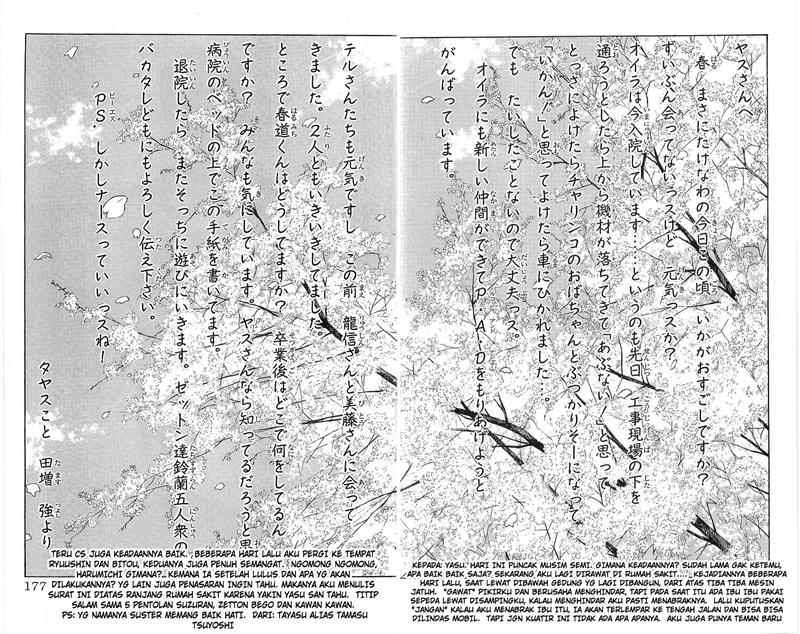 ヤスさんへ
春 まさにたけなわの今日この頃 いかがおすごしですか?
ずいぶん会ってないっスけど 元気っスか?
オイラは今入院しています……というのも先日、工事現場の下を
通ろうとしたら上から機材が落ちてきて「あぶない!」と思って
とっさによけたらチャリンコのおばちゃんとぶつかりそーになって、
「いかん!」と思ってよけたら車にひかれました…。
でも たいしたことないので大丈夫っス。
オイラにも新しい仲間ができてP.A.Dをもりあげようと
がんばっています。
テルさんたちも元気ですし この前 龍信さんと美藤さんに会って
きました。2人ともいきいきしてました。
ところで春道くんはどうしてますか? 卒業後はどこで何をしてるん
ですか? みんなも気にしています。ヤスさんなら知ってるだろうと思い
病院のベッドの上でこの手紙を書いてます。
退院したら またそっちに遊びにいきます。ゼットン達鈴蘭五人衆の
バカタレどもにもよろしく伝え下さい。
PS. しかしナースっていいっスね!
タヤスこと 田増 強より
KEPADA: YASU. HARI INI PUNCAK MUSIM SEMI. GIMANA KEADAANNYA? SUDAH LAMA GAK KETEMU,
APA BAIK BAIK SAJA? SEKARANG AKU LAGI DIRAWAT DI RUMAH SAKIT..... KEJADIANNYA BEBERAPA
HARI LALU, SAAT LEWAT DIBAWAH GEDUNG YG LAGI DIBANGUN, DARI ATAS TIBA TIBA MESIN
JATUH. "GAWAT" PIKIRKU DAN BERUSAHA MENGHINDAR, TAPI PADA SAAT ITU ADA IBU IBU PAKAI
SEPEDA LEWAT DISAMPINGKU, KALAU MENGHINDAR AKU PASTI MENABRAKNYA. LALU KUPUTUSKAN
"JANGAN" KALAU AKU MENABRAK IBU ITU, IA AKAN TERLEMPAR KE TENGAH JALAN DAN BISA BISA
DILINDAS MOBIL. TAPI JGN KUATIR INI TIDAK ADA APA APANYA. AKU JUGA PUNYA TEMAN BARU
TERU CS JUGA KEADAANNYA BAIK. , BEBERAPA HARI LALU AKU PERGI KE TEMPAT
RYUUSHIN DAN BITOU, KEDUANYA JUGA PENUH SEMANGAT. NGOMONG NGOMONG,
HARUMICHI GIMANA?. KEMANA IA SETELAH LULUS DAN APA YG AKAN
DILAKUKANNYA? YG LAIN JUGA PENASARAN INGIN TAHU. MAKANYA AKU MENULIS
SURAT INI DIATAS RANJANG RUMAH SAKIT KARENA YAKIN YASU SAN TAHU. TITIP
SALAM SAMA 5 PENTOLAN SUZURAN, ZETTON BEGO DAN KAWAN KAWAN.
PS: YG NAMANYA SUSTER MEMANG BAIK HATI. DARI: TAYASU ALIAS TAMASU
TSUYOSHI
177